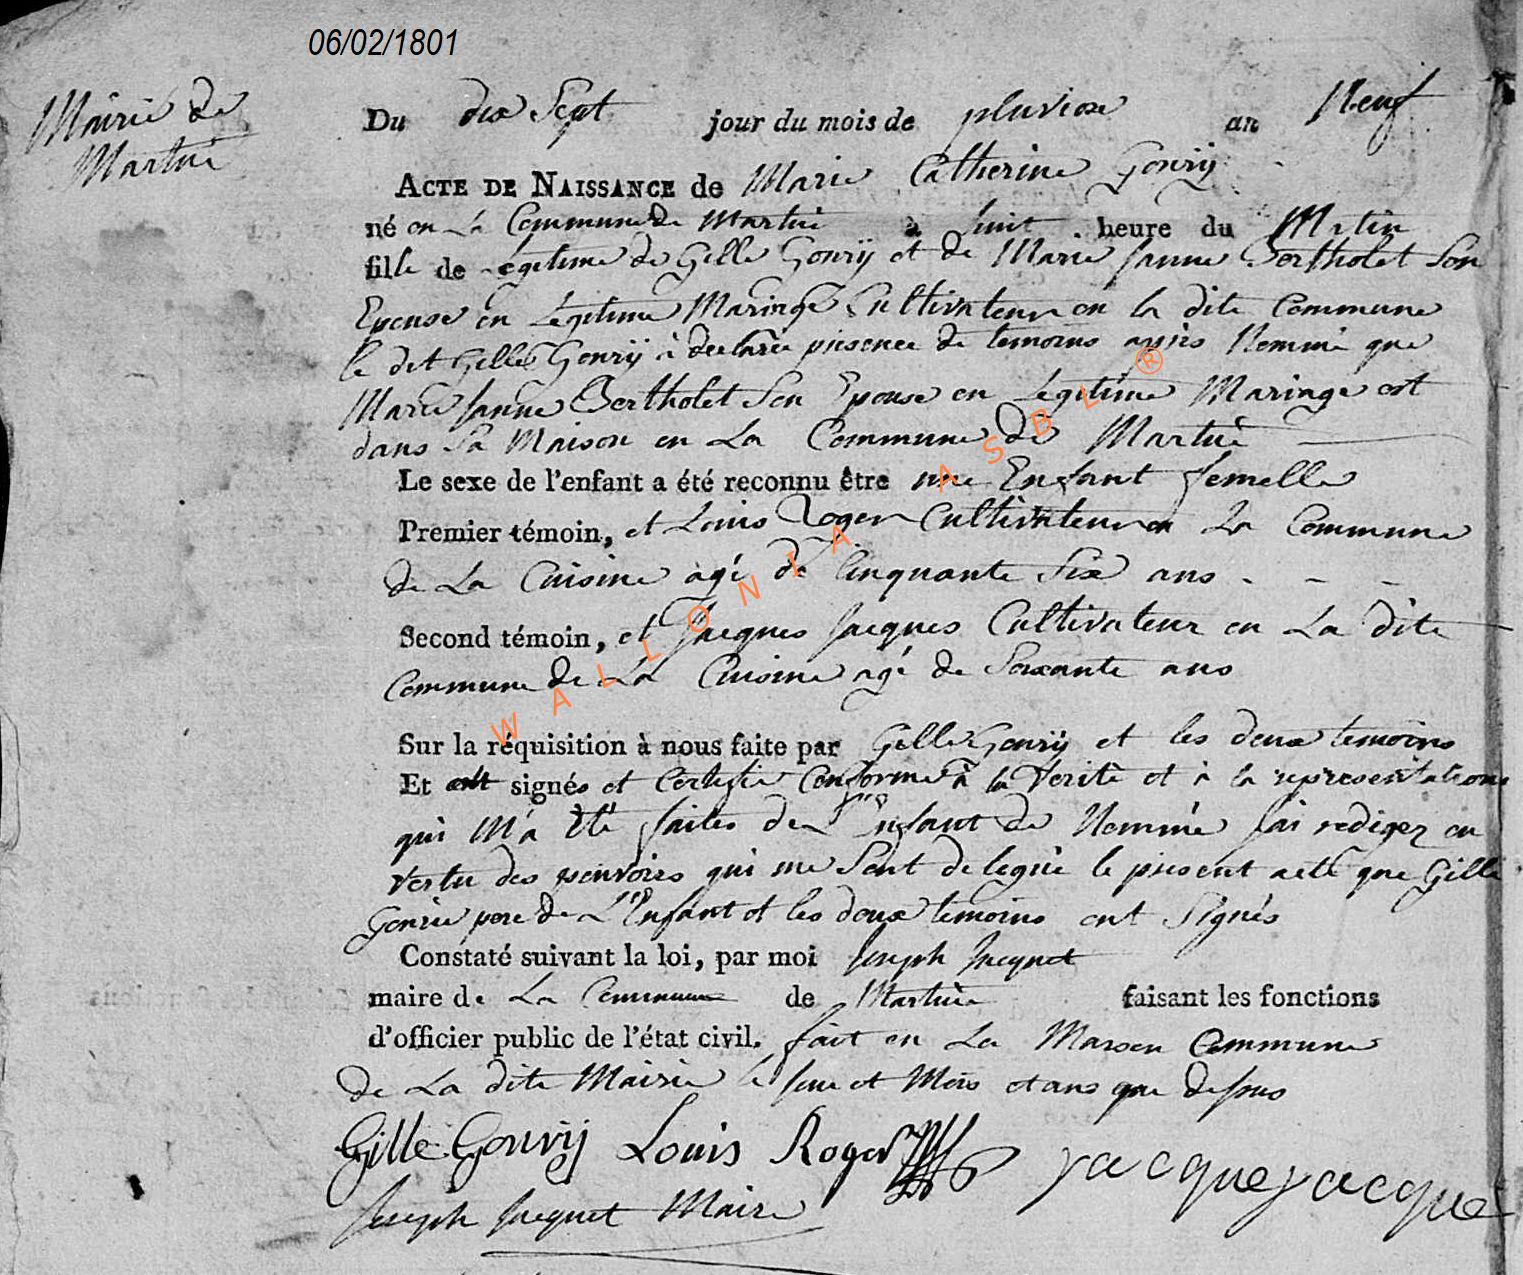 06/02/1801
Mairie de
Martué
Du dix Sept jour du mois de pluviose an Neuf
ACTE DE NAISSANCE de Marie Catherine Gouvÿ
né en La Commune de Martué à huit heure du Matin
fille de Legitime de Gille Gouvÿ et de Marie Janne Bertholet Son
Epouse en Legitime Mariage Cultivateur en la dite Commune
le dit Gille Gouvÿ à declarée presence de temoins après Nommé que
Marie Janne Bertholet Son Epouse en Legitime Mariage est
dans Sa Maison en La Commune de Martué
Le sexe de l'enfant a été reconnu être une Enfant femelle
Premier témoin, et Louis Roger Cultivateur en La Commune
de La Cuisine agé de Cinquante Six ans
Second témoin, et Jacques Jacques Cultivateur en La dite
Commune de La Cuisine agé de Soixante ans
Sur la réquisition à nous faite par Gille Gouvÿ et les deux temoins
Et ont signés et Certifié Conforme à la Verité et à la representations
qui M'a Eté faites de L'Enfant de Nommée J'ai rediger en
Vertu des pouvoirs qui me Sont delegué le present acte que Gille
Gouvie pere de L'Enfant et les deux temoins ont Signés
Constaté suivant la loi, par moi Joseph Jacquet
maire de La Commune de Martué faisant les fonctions
d'officier public de l'état civil. fait en La Maison Commune
de La dite Mairie le Jour et Mois et ans que dessus
Gille Gouvÿ Louis Roger Jacque Jacque
Joseph Jacquet Maire
WALLONIA ASBL ®